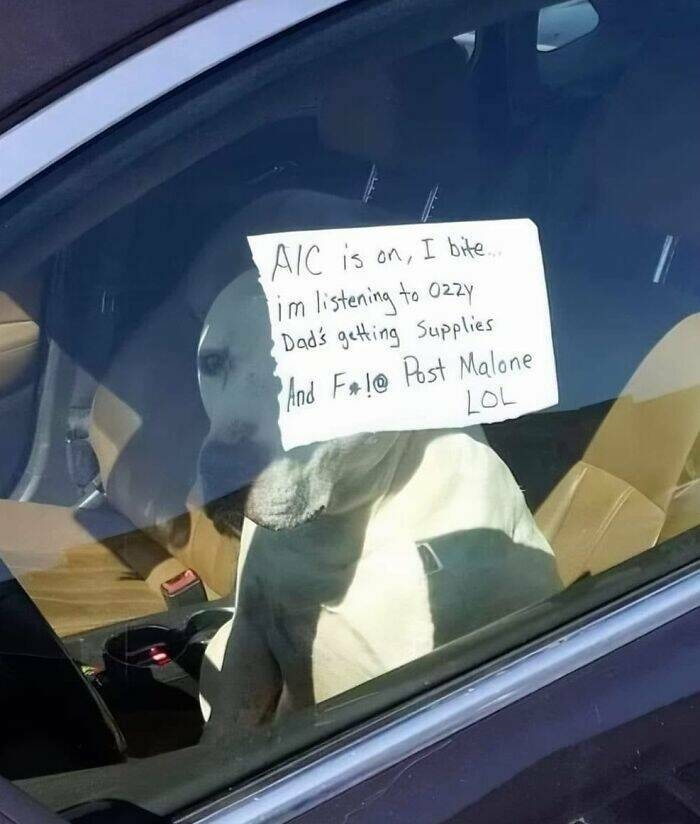 A/C is on, I bite...
im listening to Ozzy
Dad's getting Supplies
And F*!@ Post Malone
LOL